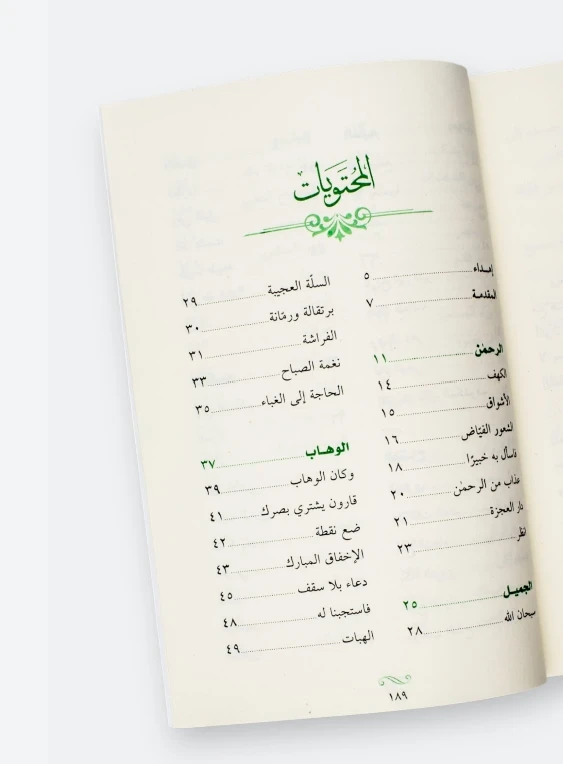 المحتويات
إهداء ٥
المقدمة ٧
الرحمن ١١
الكهف ١٤
الأشواق ١٥
الشعور الفيّاض ١٦
فاسأل به خبيرًا ١٨
عذاب من الرحمن ٢٠
دار العجزة ٢١
انظر ٢٣
الجميل ٢٥
سبحان الله ٢٨
السلّة العجيبة ٢٩
برتقالة ورمّانة ٣٠
الفراشة ٣١
نغمة الصباح ٣٣
الحاجة إلى الغباء ٣٥
الوهاب ٣٧
وكان الوهاب ٣٩
قارون يشتري بصرك ٤١
ضع نقطة ٤٢
الإخفاق المبارك ٤٣
دعاء بلا سقف ٤٥
فاستجبنا له ٤٨
الهبات ٤٩
١٨٩